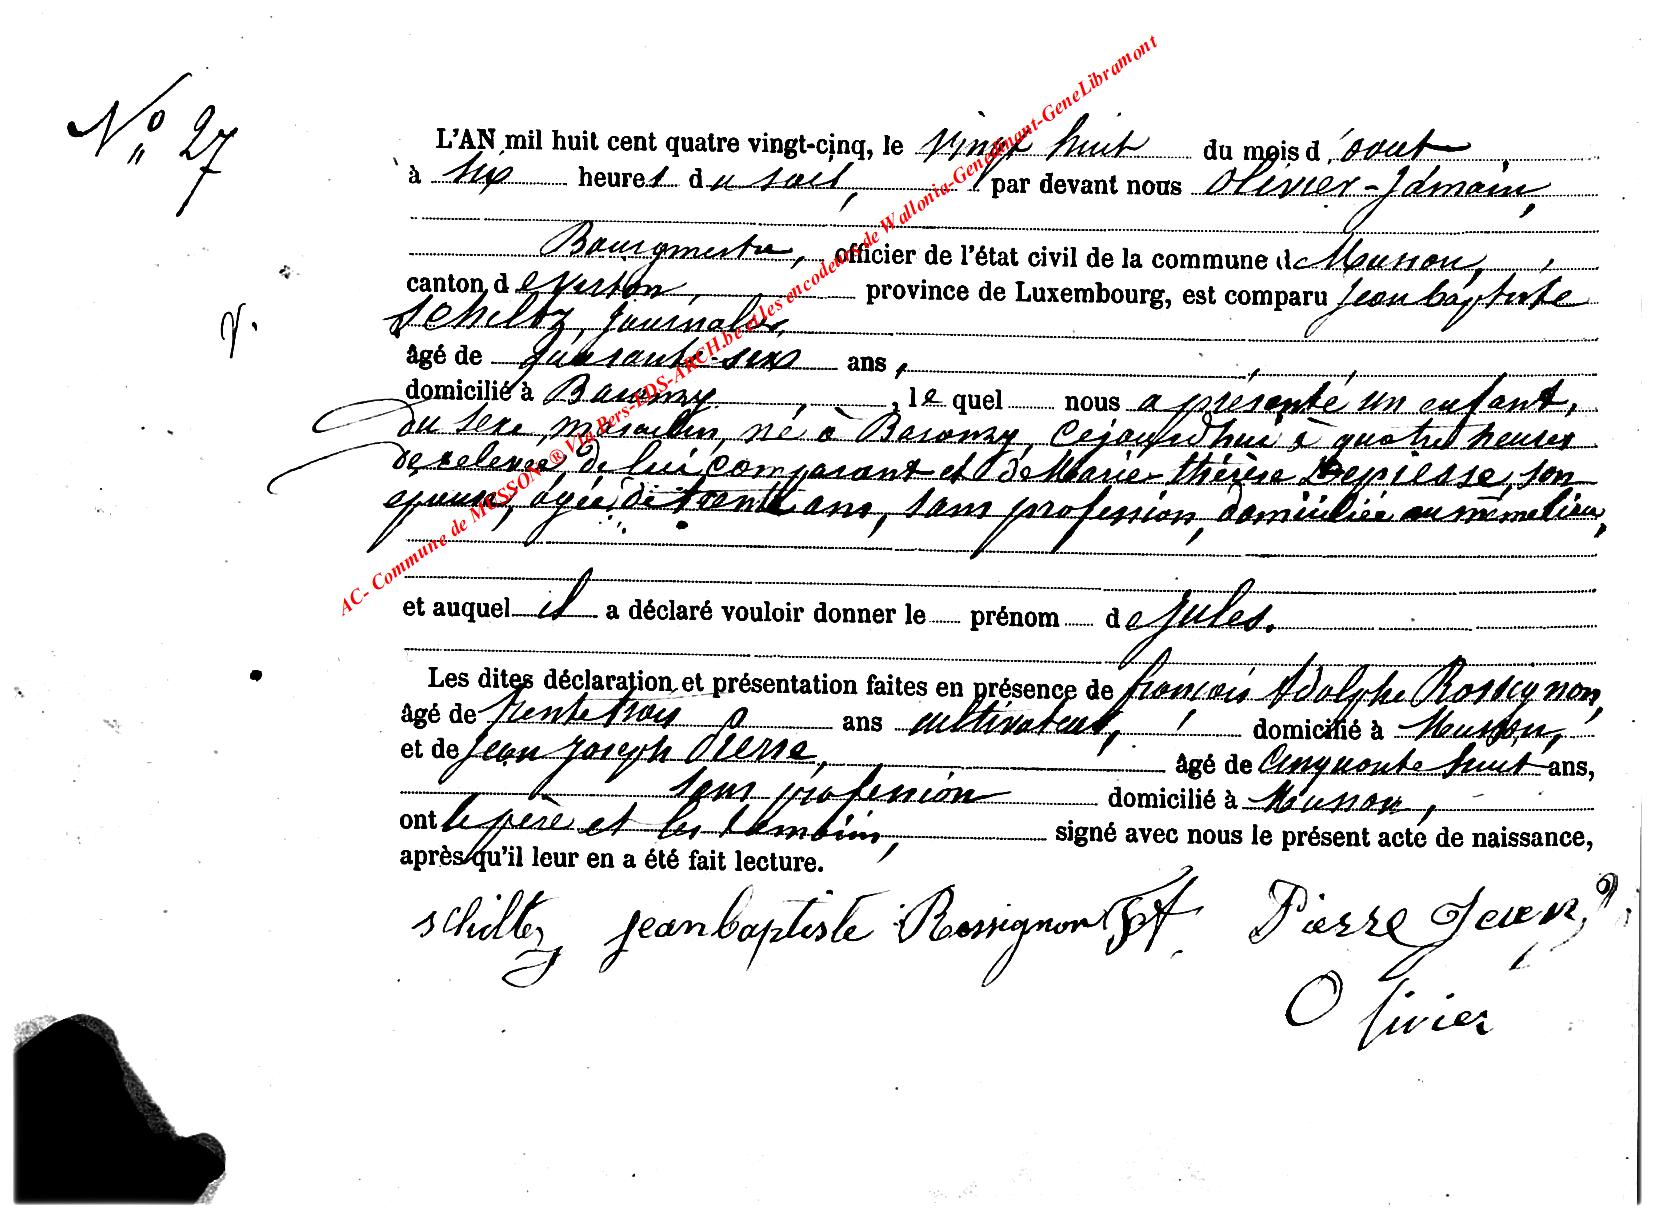 N° 27
L'AN mil huit cent quatre vingt-cinq, le vingt huit du mois d'aout
à six heures du soir, par devant nous Olivier-Jamain,
Bourgmestre, officier de l'état civil de la commune de Musson,
canton de Virton, province de Luxembourg, est comparu Jean baptiste
Schiltz, journalier,
âgé de quarante-six ans,
domicilié à Baranzy, lequel nous a présenté un enfant,
du sexe masculin, né à Baranzy, cejourd'hui à quatre heures
de relevée, de lui comparant et de Marie-thérèse Depiesse, son
épouse, âgée de trente ans, sans profession, domiciliée au même lieu,
et auquel il a déclaré vouloir donner le prénom de Jules.
Les dites déclaration et présentation faites en présence de françois Adolphe Rossignon,
âgé de trente trois ans cultivateur, domicilié à Musson,
et de Jean Joseph Pierre, âgé de Cinquante huit ans,
sans profession domicilié à Musson,
ont le père et les témoins, signé avec nous le présent acte de naissance,
après qu'il leur en a été fait lecture.
schiltz jeanbaptiste Rossignon FA Pierre Jean
Olivier
AC- Commune de MUSSON ® Via Pers-EDS-ARCH.be et les encodeurs de Wallonia-Genedinant-GeneLibramont